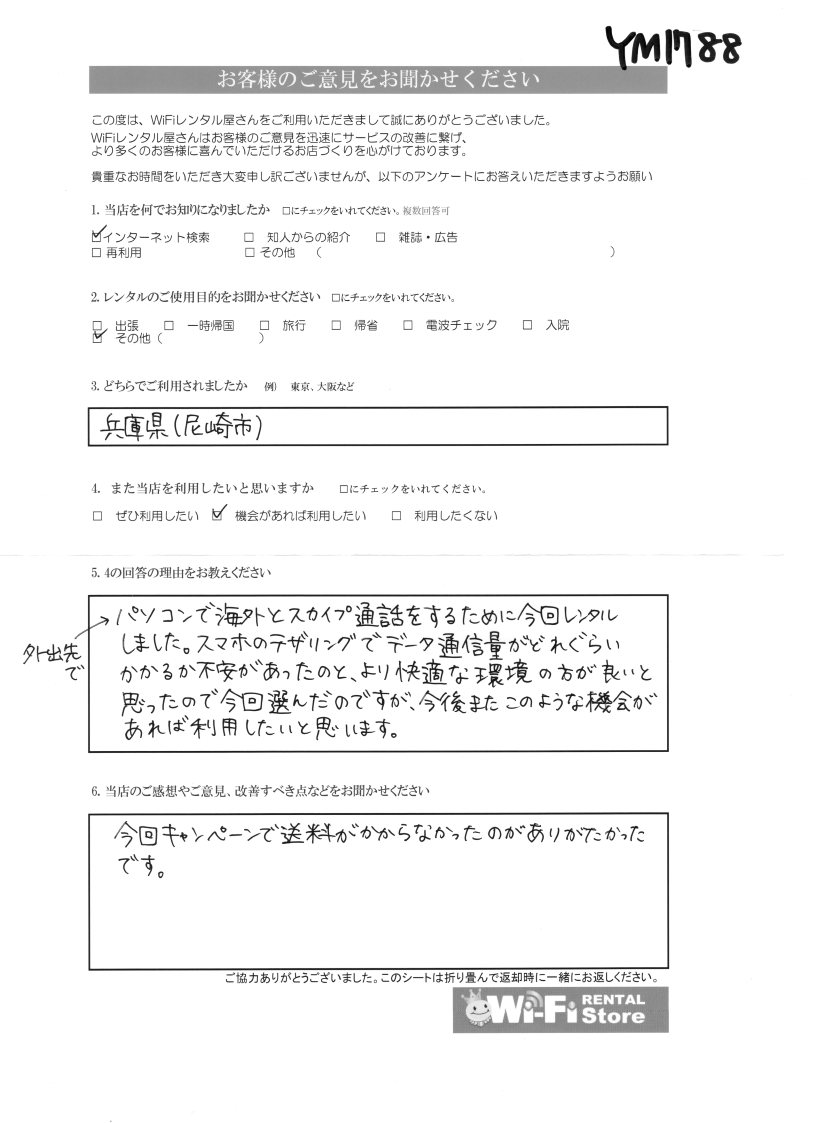 YM1788
お客様のご意見をお聞かせください
この度は、WiFiレンタル屋さんをご利用いただきまして誠にありがとうございました。
WiFiレンタル屋さんはお客様のご意見を迅速にサービスの改善に繋げ、
より多くのお客様に喜んでいただけるお店づくりを心がけております。
貴重なお時間をいただき大変申し訳ございませんが、以下のアンケートにお答えいただきますようお願い
1. 当店を何でお知りになりましたか □にチェックをいれてください。複数回答可
☑インターネット検索 □ 知人からの紹介 □ 雑誌・広告
□ 再利用 □ その他 ( )
2. レンタルのご使用目的をお聞かせください □にチェックをいれてください。
□ 出張 □ 一時帰国 □ 旅行 □ 帰省 □ 電波チェック □ 入院
☑ その他 ( )
3. どちらでご利用されましたか 例) 東京、大阪など
兵庫県(尼崎市)
4. また当店を利用したいと思いますか □にチェックをいれてください。
□ ぜひ利用したい ☑ 機会があれば利用したい □ 利用したくない
5. 4の回答の理由をお教えください
外出先で→
パソコンで海外とスカイプ通話をするために今回レンタル
しました。スマホのテザリングでデータ通信量がどれぐらい
かかるか不安があったのと、より快適な環境の方が良いと
思ったので今回選んだのですが、今後またこのような機会が
あれば利用したいと思います。
6. 当店のご感想やご意見、改善すべき点などをお聞かせください
今回キャンペーンで送料がかからなかったのがありがたかった
です。
ご協力ありがとうございました。このシートは折り畳んで返却時に一緒にお返しください。
Wi-Fi RENTAL Store